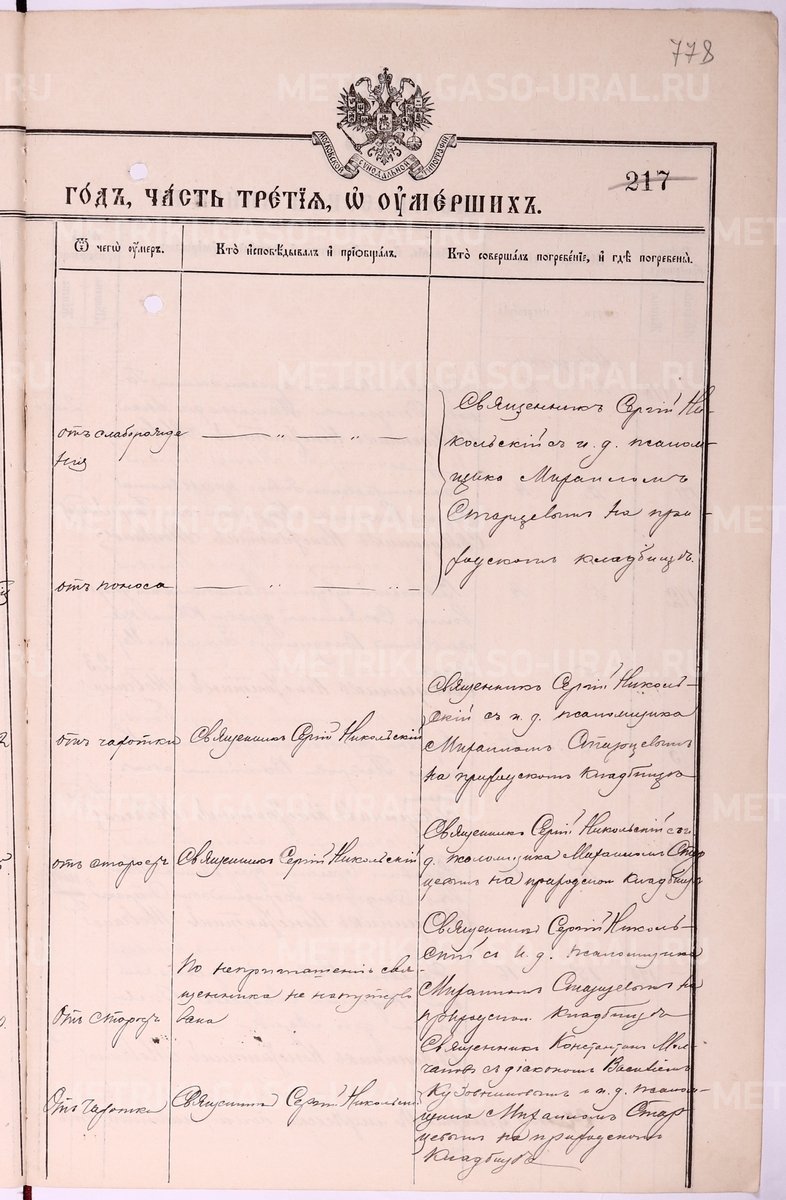 778
МОСКОВСКОЙ СѴНОДАЛЬНОЙ ТИПОГРАФІИ
217
го́дъ, ча́сть тре́тїѧ, ѡ҆ оу҆ме́ршихъ.
Ѿ чегѡ̀ оу҆́меръ.
Кто̀ и҆сповѣ́дывалъ и҆ прїѡбща́лъ.
Кто̀ соверша́лъ погребе́нїе, и҆ гдѣ̀ погребены̀.
отъ слаборожде
нія
Священникъ Сергій Ни-
кольскій съ и. д. псалом-
щика Михаиломъ
Старцевымъ на при-
ходскомъ кладбищѣ.
отъ поноса
отъ чахотки
Священникъ Сергій Никольскій
Священникъ Сергій Николь-
скій съ и. д. псаломщика
Михаиломъ Старцевымъ
на приходскомъ кладбищѣ
отъ старости
Священникъ Сергій Никольскій
Священникъ Сергій Никольскій съ и.
д. псаломщика Михаиломъ Стар
цевымъ на приходском кладбищѣ
Отъ старости
По неприглашенію свя-
щенника не напутство
вана
Священникъ Сергій Николь-
скій съ и. д. псаломщика
Михаиломъ Старцевымъ на
приходском кладбищѣ
Отъ чахотки
Священникъ Сергій Никольскій
Священникъ Константинъ Мол-
чановъ съ діакономъ Василіемъ
и и. д. псалом-
щика Михаиломъ Стар
цевымъ на приходскомъ
кладбищѣ
METRIKI.GASO-URAL.RU